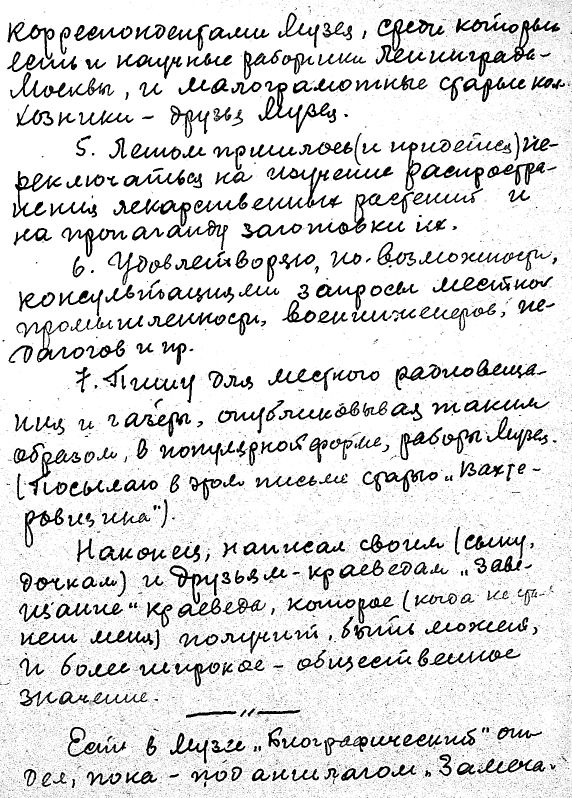 корреспондентами Музея, среди которых
есть и научные работники Ленинграда-
Москвы, и малограмотные старые кол-
хозники - друзья Музея.
5. Летом пришлось (и придется) пе-
реключаться на изучение распростра-
нения лекарственных растений и
на пропаганду заготовки их.
6. Удовлетворяю, по возможности,
консультациями запросы местной
промышленности, военинженеров, пе-
дагогов и пр.
7. Пишу для местного радиовеща-
ния и газеты, опубликовывая таким
образом, в популярной форме, работы Музея.
(Посылаю в этом письме статью „Вахте-
ровщина").
Наконец, написал своим (сыну,
дочкам) и друзьям-краеведам „Заве-
щание" краеведа, которое (когда не ста-
нет меня) получит, быть может,
и более широкое - общественное
значение.
Есть в Музее „Биографический" от-
дел, пока - под аншлагом „Замеча-